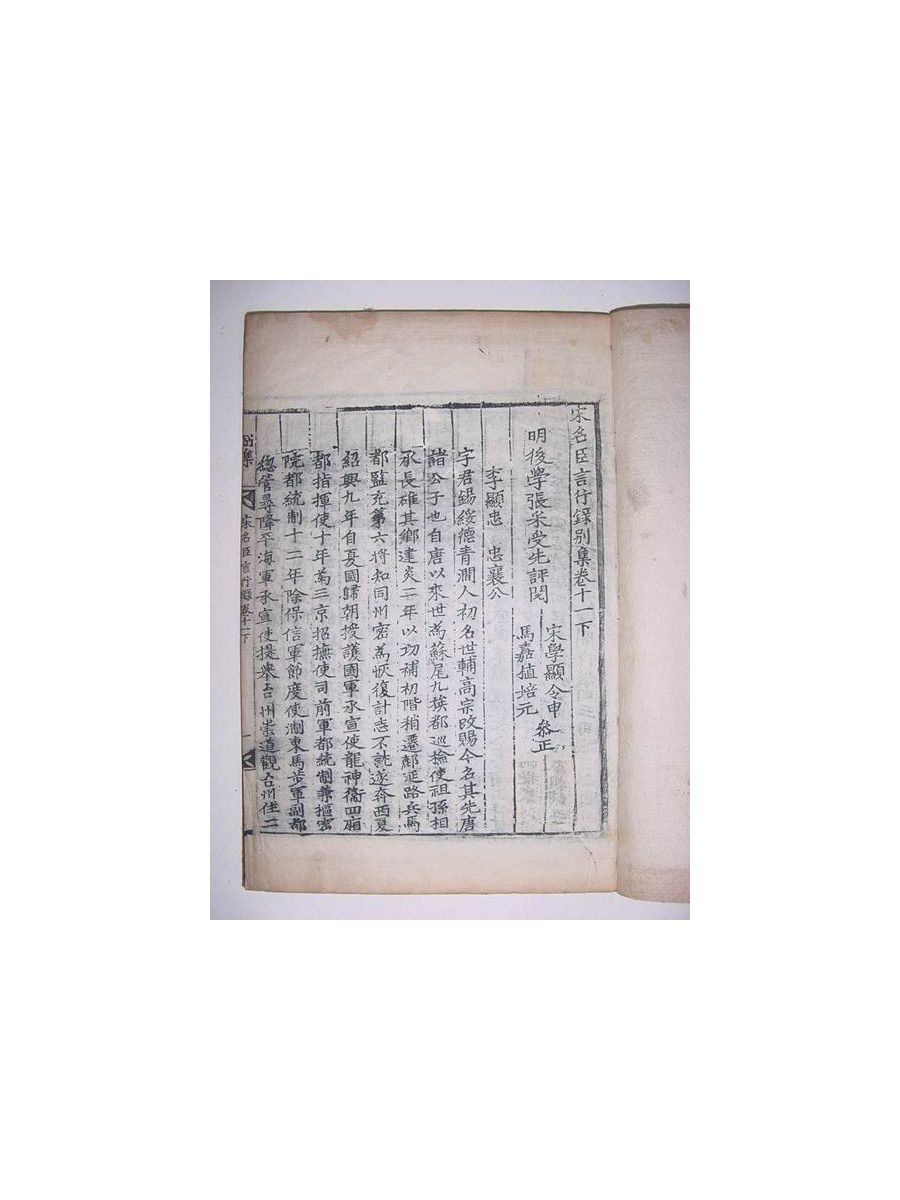 宋名臣言行錄別集卷十一下
明後學張采受先評閱
宋學顯令申
馬嘉植培元
叅正
李顯忠 忠襄公
字君錫綏德青澗人初名世輔高宗改賜今名其先唐
諸公子也自唐以來世為蘇尾九族都巡檢使祖孫相
承長雄其鄉建炎二年以功補初階稍遷鄜延路兵馬
都監充第六將知同州密為恢復計志不就遂奔西夏
紹興九年自夏國歸朝授護國軍承宣使龍神衞四廂
都指揮使十年為三京招撫使司前軍都統制兼樞密
院都統制十二年除保信軍節度使浙東馬步軍副都
總管尋降平海軍承宣使提舉台州崇道觀台州住二
別集
宋名臣言行錄卷十一下
一